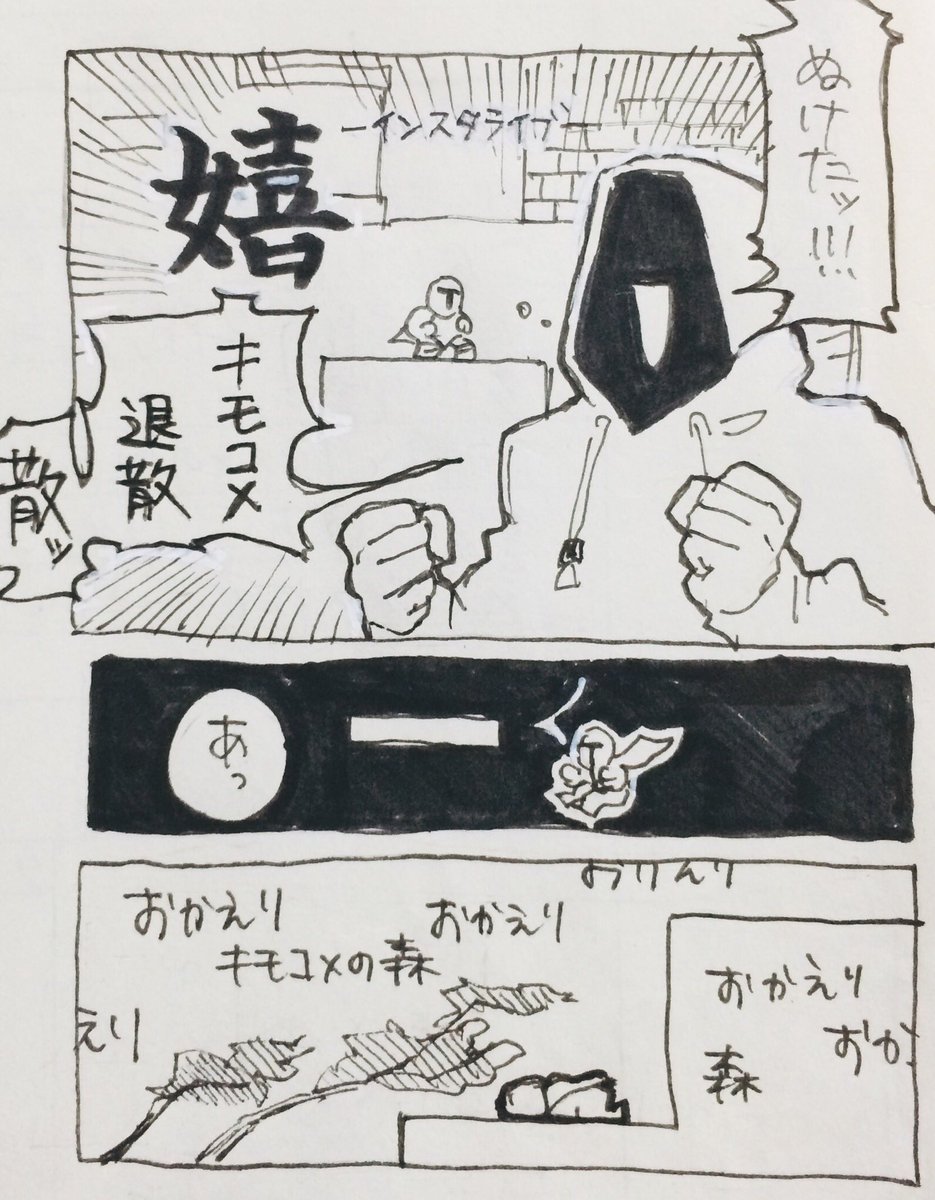 ぬけたッ!!!
ーインスタライブ
嬉
キモコメ
退散
散ッ
あっ
おかえり
おかえり
キモコメの森
えり
おかえり
おか
森